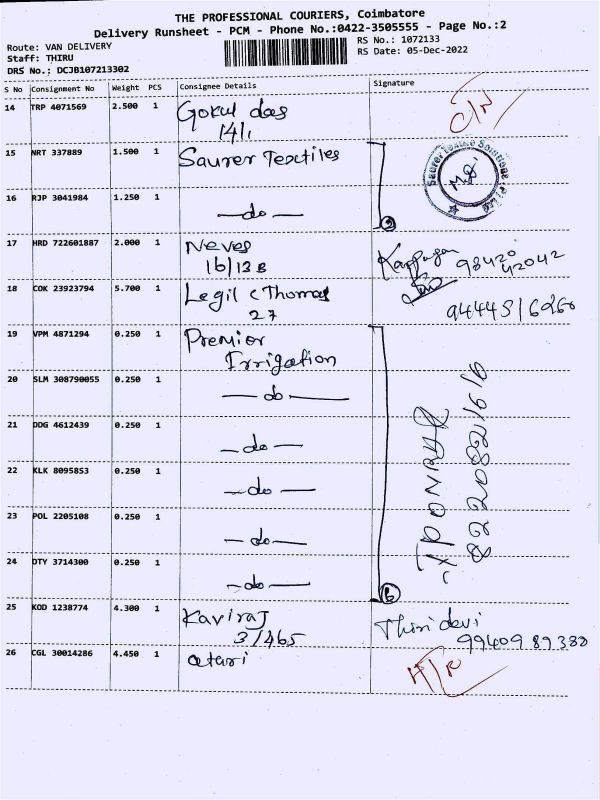 THE PROFESSIONAL COURIERS, Coimbatore
Delivery Runsheet - PCM - Phone No.:0422-3505555 - Page No.:2
Route: VAN DELIVERY
RS No.: 1072133
Staff: THIRU
RS Date: 05-Dec-2022
DRS No.: DCJB107213302
S No Consignment No Weight PCS Consignee Details Signature
14 TRP 4071569 2.500 1 Gokul das
14/1
15 NRT 337889 1.500 1 Saurer Textiles
Saurer Textile Solutions
16 RJP 3041984 1.250 1 -do-
2
17 HRD 722601887 2.000 1 Neves
16/13 B
98420
42042
18 COK 23923794 5.700 1 Legil C Thomas
27
19 VPM 4871294 0.250 1 Premier
Irrigation
20 SLM 308790055 0.250 1 -do-
21 DDG 4612439 0.250 1 -do-
22 KLK 8095853 0.250 1 -do-
23 POL 2205108 0.250 1 -do-
24 DTY 3714300 0.250 1 -do-
6
25 KOD 1238774 4.300 1 Kaviraj
3/465
Thiridevi
99409 89388
26 CGL 30014286 4.450 1 atari